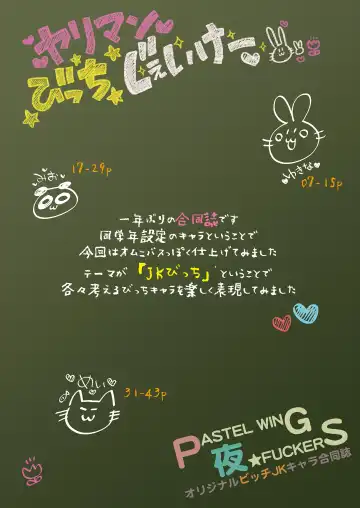 ヤリマン
びっち じぇいけー
17-29p
みお
ゆきな
07-15p
一年ぶりの合同誌です
同学年設定のキャラということで
今回はオムニバスっぽく仕上げてみました
テーマが「JKびっち」ということで
各々考えるびっちキャラを楽しく表現してみました
めい
31-43p
PASTEL WINGS
夜★FUCKERS
オリジナルビッチJKキャラ合同誌